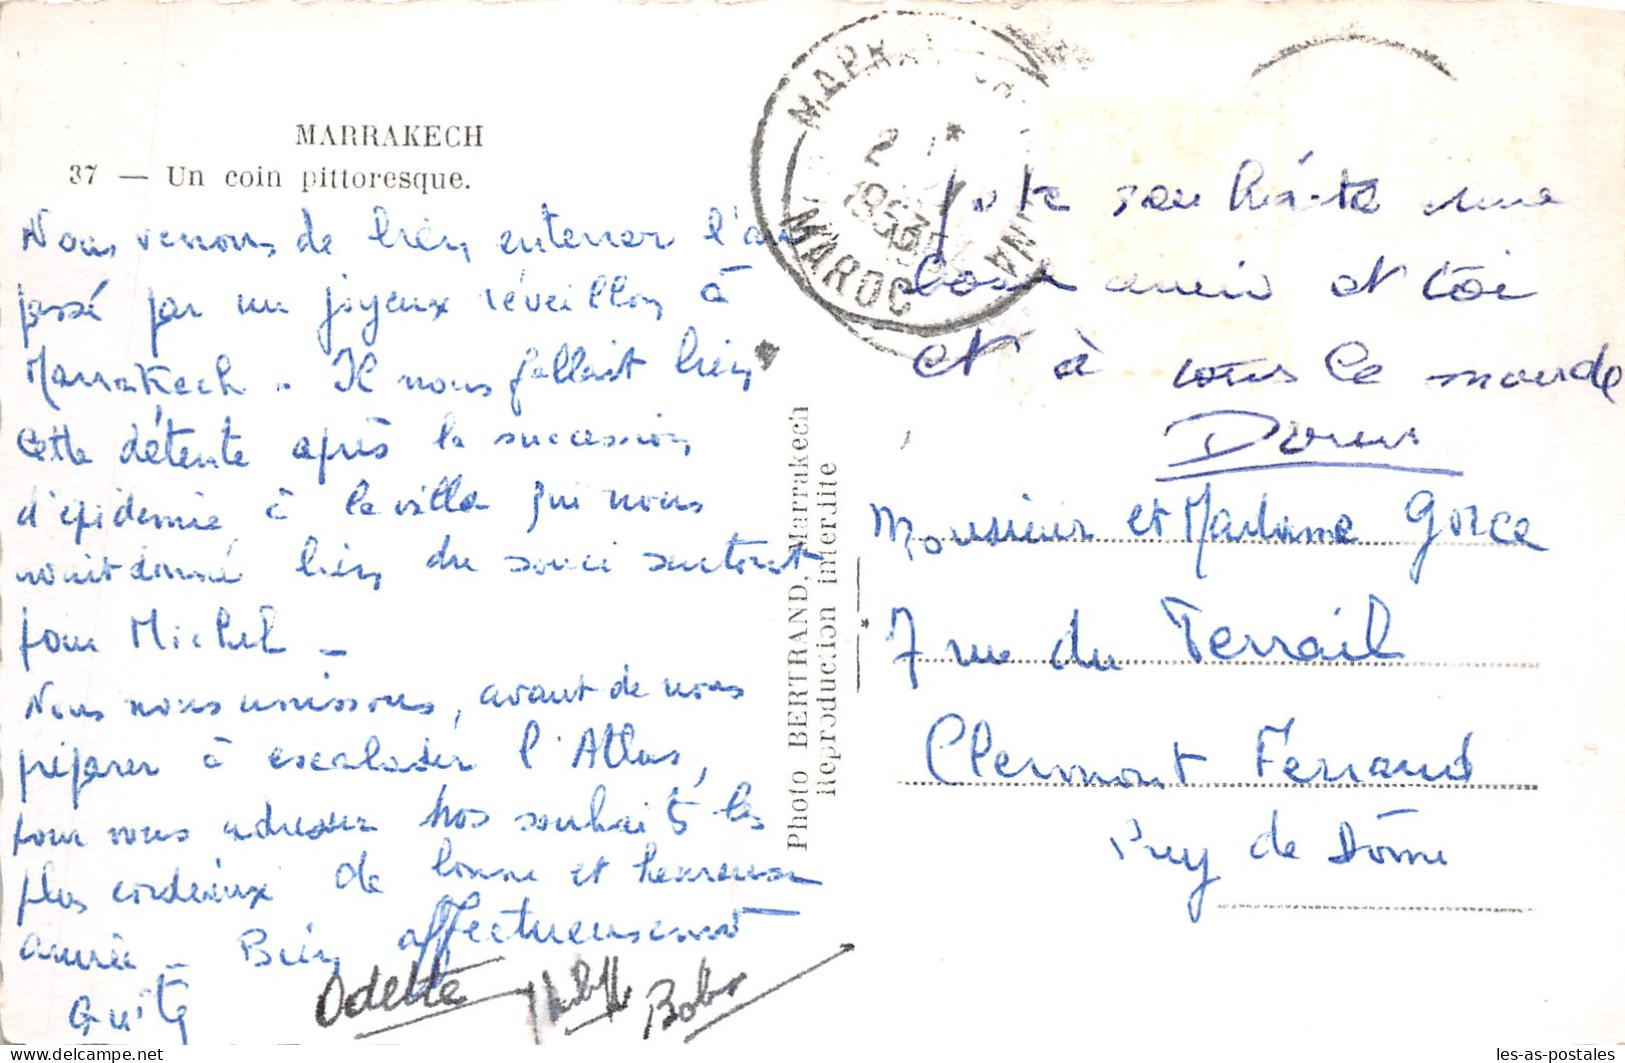 MARRAKECH
37 — Un coin pittoresque.
Nous venons de bien enterrer l'an
passé par un joyeux réveillon à
Marrakech. Il nous fallait bien
cette détente après la succession
d'épidémie à la villa qui nous
avait donné bien du souci surtout
pour Michel —
Nous nous unissons, avant de nous
préparer à escalader l'Atlas,
pour vous adresser nos souhaits les
plus cordiaux de bonne et heureuse
année — Bien affectueusement
Guite Odette Bobo
Photo BERTRAND, Marrakech
Reproduction interdite
MAROC
1953
souhaite une
bonne année et toi
et à tous le monde
Monsieur et Madame Gorce
7 rue du Terrail
Clermont Ferrand
Puy de Dôme
les-as-postales